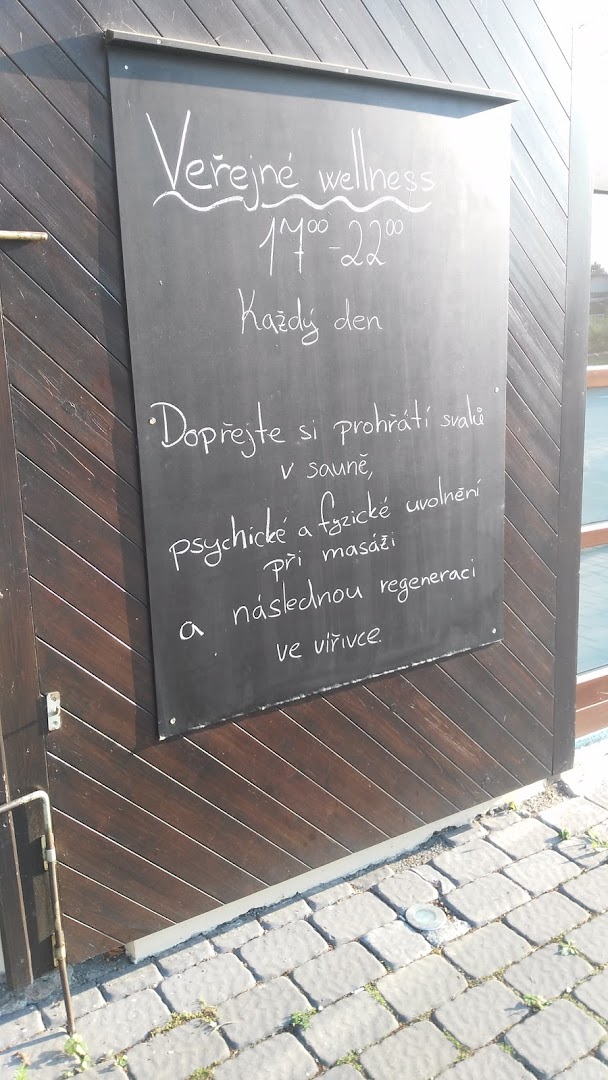 Veřejné wellness
17⁰⁰-22⁰⁰
Každý den
Dopřejte si prohřátí svalů
v sauně,
psychické a fyzické uvolnění
při masáži
a následnou regeneraci
ve vířivce.